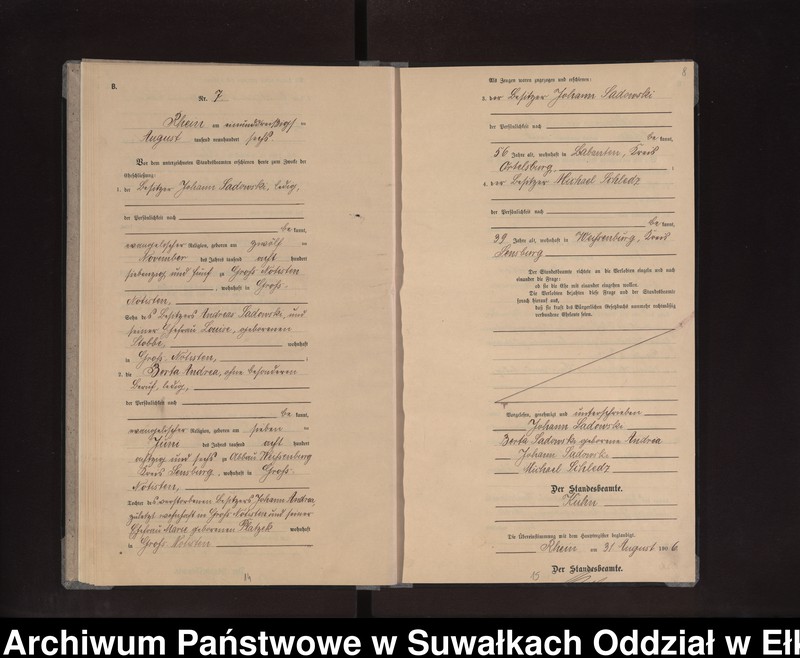 B.
Nr. 7
Rhein am einunddreißigsten
August tausend neunhundert sechs
Vor dem unterzeichneten Standesbeamten erschienen heute zum Zwecke der
Eheschließung:
1. der Besitzer Johann Sadowski, ledig,
der Persönlichkeit nach
be kannt,
evangelischer Religion, geboren am zwölften
November des Jahres tausend acht hundert
siebenzig und fünf zu Groß Notisten
, wohnhaft in Groß-
Notisten,
Sohn des Besitzers Andreas Sadowski, und
seiner Ehefrau Louise, geborenen
Stobbe, wohnhaft
in Groß Notisten,
2. die Berta Andrea, ohne besonderen
Beruf, ledig,
der Persönlichkeit nach
be kannt,
evangelischer Religion, geboren am sieben ten
Juni des Jahres tausend acht hundert
achtzig und sechs zu Abbau Weissenburg
Kreis Sensburg, wohnhaft in Groß
Notisten,
Tochter des verstorbenen Besitzers Johann Andrea,
zuletzt wohnhaft in Groß Notisten und seiner
Ehefrau Marie geborenen Platzek wohnhaft
in Groß Notisten
14
8
Als Zeugen waren zugezogen und erschienen:
3. der Besitzer Johann Sadowski
der Persönlichkeit nach
be kannt,
56 Jahre alt, wohnhaft in Babanten, Kreis
Ortelsburg, ;
4. der Besitzer Michael Schledz
der Persönlichkeit nach
be kannt,
39 Jahre alt, wohnhaft in Kreis
Sensburg
Der Standesbeamte richtete an die Verlobten einzeln und nach
einander die Frage:
ob sie die Ehe mit einander eingehen wollen.
Die Verlobten bejahten diese Frage und der Standesbeamte
sprach hierauf aus,
daß sie kraft des Bürgerlichen Gesetzbuchs nunmehr rechtmäßig
verbundene Eheleute seien.
Vorgelesen, genehmigt und unterschrieben
Johann Sadowski
Berta Sadowski geborene Andrea
Johann Sadowski
Michael Schledz
Der Standesbeamte.
Kuhn
Die Übereinstimmung mit dem Hauptregister beglaubigt.
Rhein am 31 August 1906
Der Standesbeamte.
15
Archiwum Państwowe w Suwałkach Oddział w Ełk